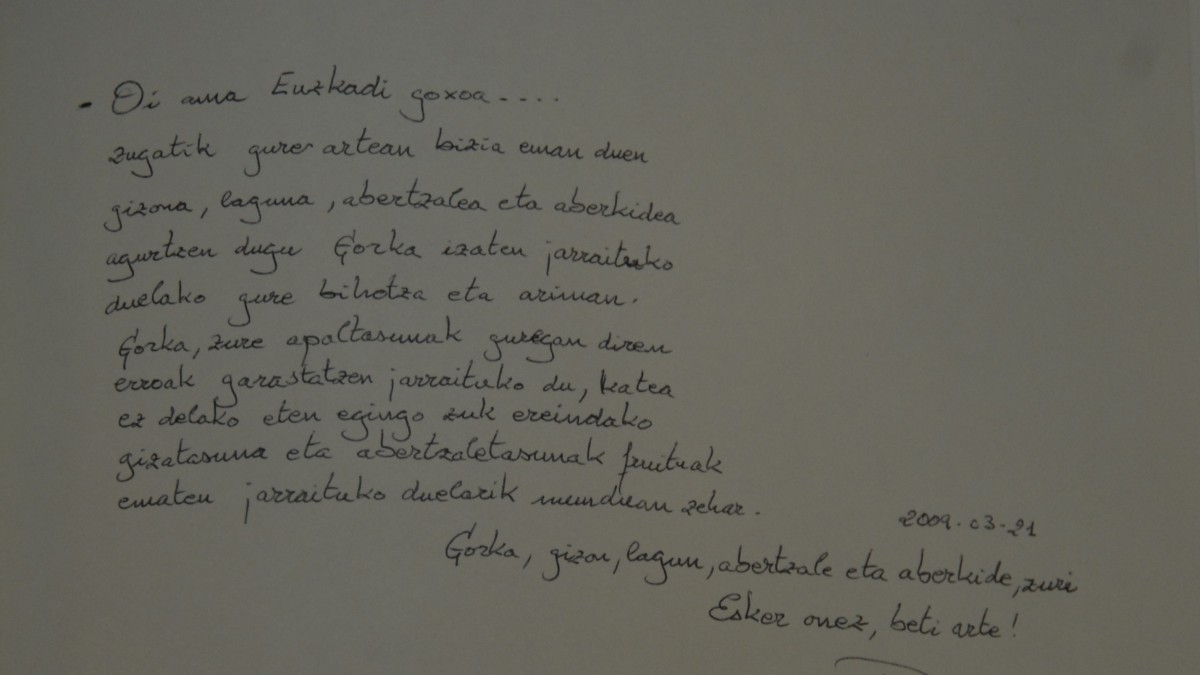 - Oi ama Euzkadi goxoa....
zugatik gure artean bizia eman duen
gizona, laguna, abertzalea eta aberkidea
agurtzen dugu Gorka izaten jarraituko
duelako gure bihotza eta ariman.
Gorka, zure apaltasunak guregan diren
erroak garastatzen jarraituko du, katea
ez delako eten egingo zuk ereindako
gizatasuna eta abertzaletasunak fruituak
ematen jarraituko duelarik munduan zehar.
2009-03-21
Gorka, gizon, lagun, abertzale eta aberkide, zuri
Esker onez, beti arte!